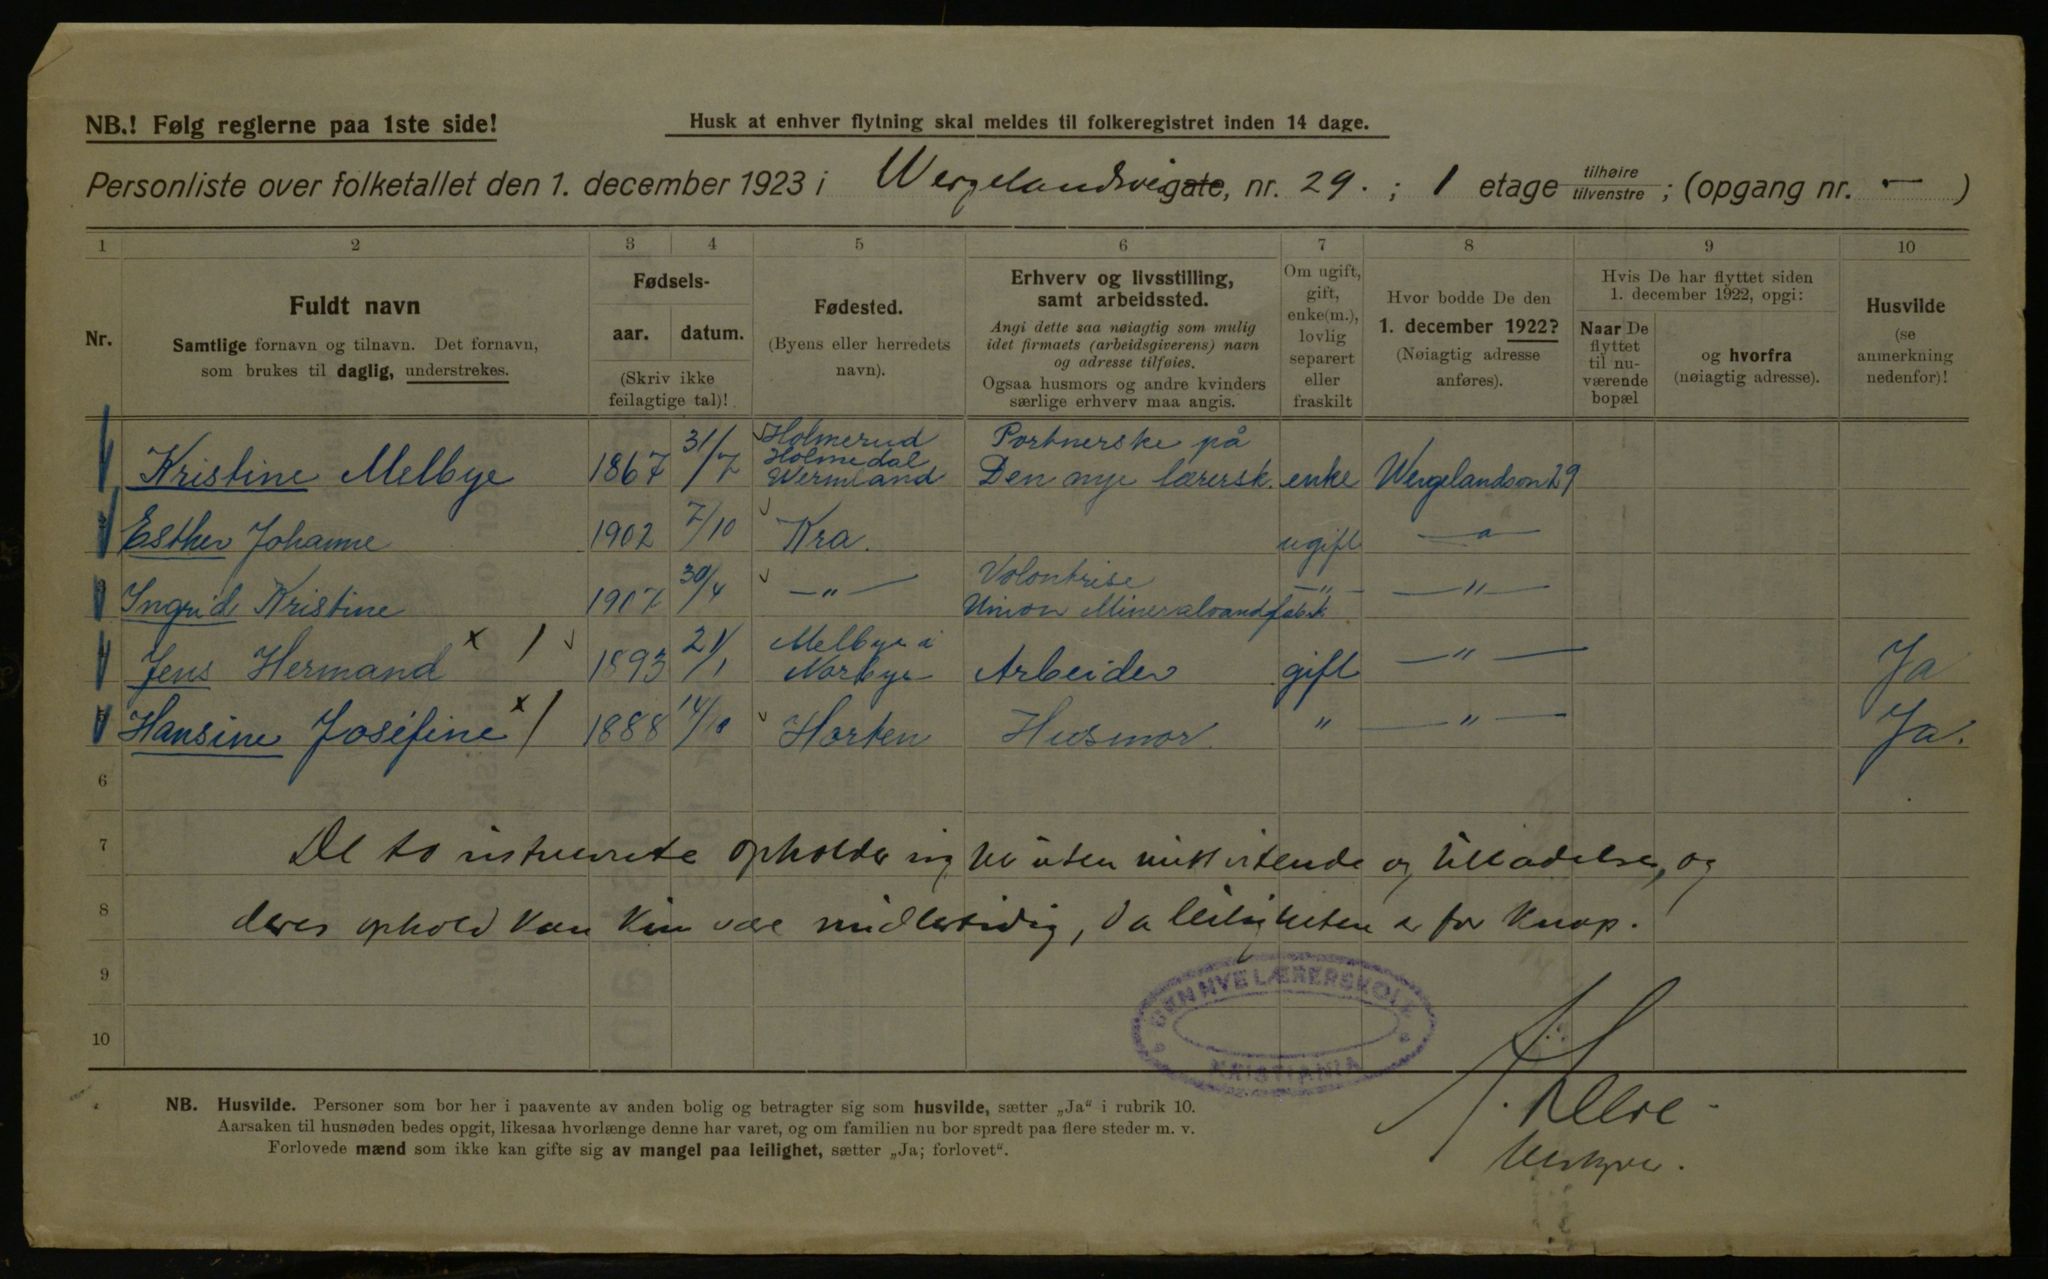 NB.! Følg reglerne paa 1ste side!
Husk at enhver flytning skal meldes til folkeregistret inden 14 dage.
Personliste over folketallet den 1. december 1923 i Wergelandsveigate, nr. 29. ; 1 etage tilhøire tilvenstre ; (opgang nr. — )
1 2 3 4 5 6 7 8 9 10
Nr.
Fuldt navn
Samtlige fornavn og tilnavn. Det fornavn,
som brukes til daglig, understrekes.
Fødsels-
aar. datum.
(Skriv ikke
feilagtige tal)!
Fødested.
(Byens eller herredets
navn).
Erhverv og livsstilling,
samt arbeidssted.
Angi dette saa nøiagtig som mulig
idet firmaets (arbeidsgiverens) navn
og adresse tilføies.
Ogsaa husmors og andre kvinders
særlige erhverv maa angis.
Om ugift,
gift,
enke(m.),
lovlig
separert
eller
fraskilt
Hvor bodde De den
1. december 1922?
(Nøiagtig adresse
anføres).
Hvis De har flyttet siden
1. december 1922, opgi:
Naar De
flyttet
til nu-
værende
bopæl
og hvorfra
(nøiagtig adresse).
Husvilde
(se
anmerkning
nedenfor)!
Kristine Melbye 1867 31/7 Holmerud Holmedal Wermland Portnerske på Den nye lærersk. enke Wergelandsvn 29
Esther Johanne 1902 7/10 Kra. ugift — " —
Ingrid Kristine 1907 30/4 — " — Volontrise Union Mineralvandfabrik — " — — " —
Jens Hermand x / 1893 21/1 Melbye i Norbye Arbeider gift — " — Ja
5 Hansine Josefine x / 1888 14/10 Horten Husmor " — " — Ja.
6
7 De to opholder sig her uten mitt vitende og tilladelse, og
8 deres ophold kan kun være midlertidig, da leiligheten er for knap.
9
10
DEN NYE LÆRERSKOLE
KRISTIANIA
NB. Husvilde. Personer som bor her i paavente av anden bolig og betragter sig som husvilde, sætter „Ja" i rubrik 10.
Aarsaken til husnøden bedes opgit, likesaa hvorlænge denne har varet, og om familien nu bor spredt paa flere steder m. v.
Forlovede mænd som ikke kan gifte sig av mangel paa leilighet, sætter „Ja; forlovet".